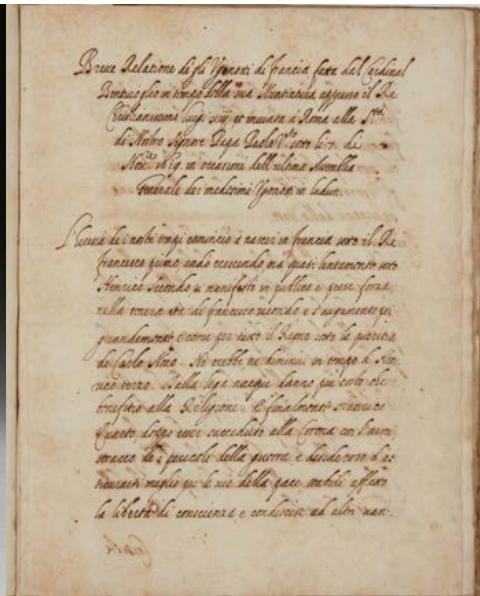 Breue Relatione de gli Vgonotti di francia fatta dal Cardinal
Bentiuoglio in tempo della sua Nuntiatura appresso il Re
Christianissimo luigi xiij et inuiata à Roma alla S.tà
di Nostro Signore Papa Paolo V.to sotto li 7. di
in occasione dell'ultima Asemblea
Generale dei medesimi Vgonotti in ludun.
L'heresia de i nostri tempi comincio à nascer in francia sotto il Re
francesco primo, andò crescendo mà quasi lentamente sotto
Henrico secondo si manifestò in publico e prese forza
nella tenera età di francesco secondo e s'augumentò poi
grandemente e corse per tutto il Regno sotto la pueritia
di Carlo Nono. Ne crebbe ne diminui in tempo di Hen-
rico terzo. Dalla lega nacque danno più tosto che
beneficio alla Religione. E finalmente Henrico
Quarto doppo esser succeduto alla Corona con l'armi
stracco de i pericoli della guerra e desideroso d'as-
sicurarsi meglio per le vie della pace stabilì affatto
la libertà di conscienza e condiscese ad altri uan-